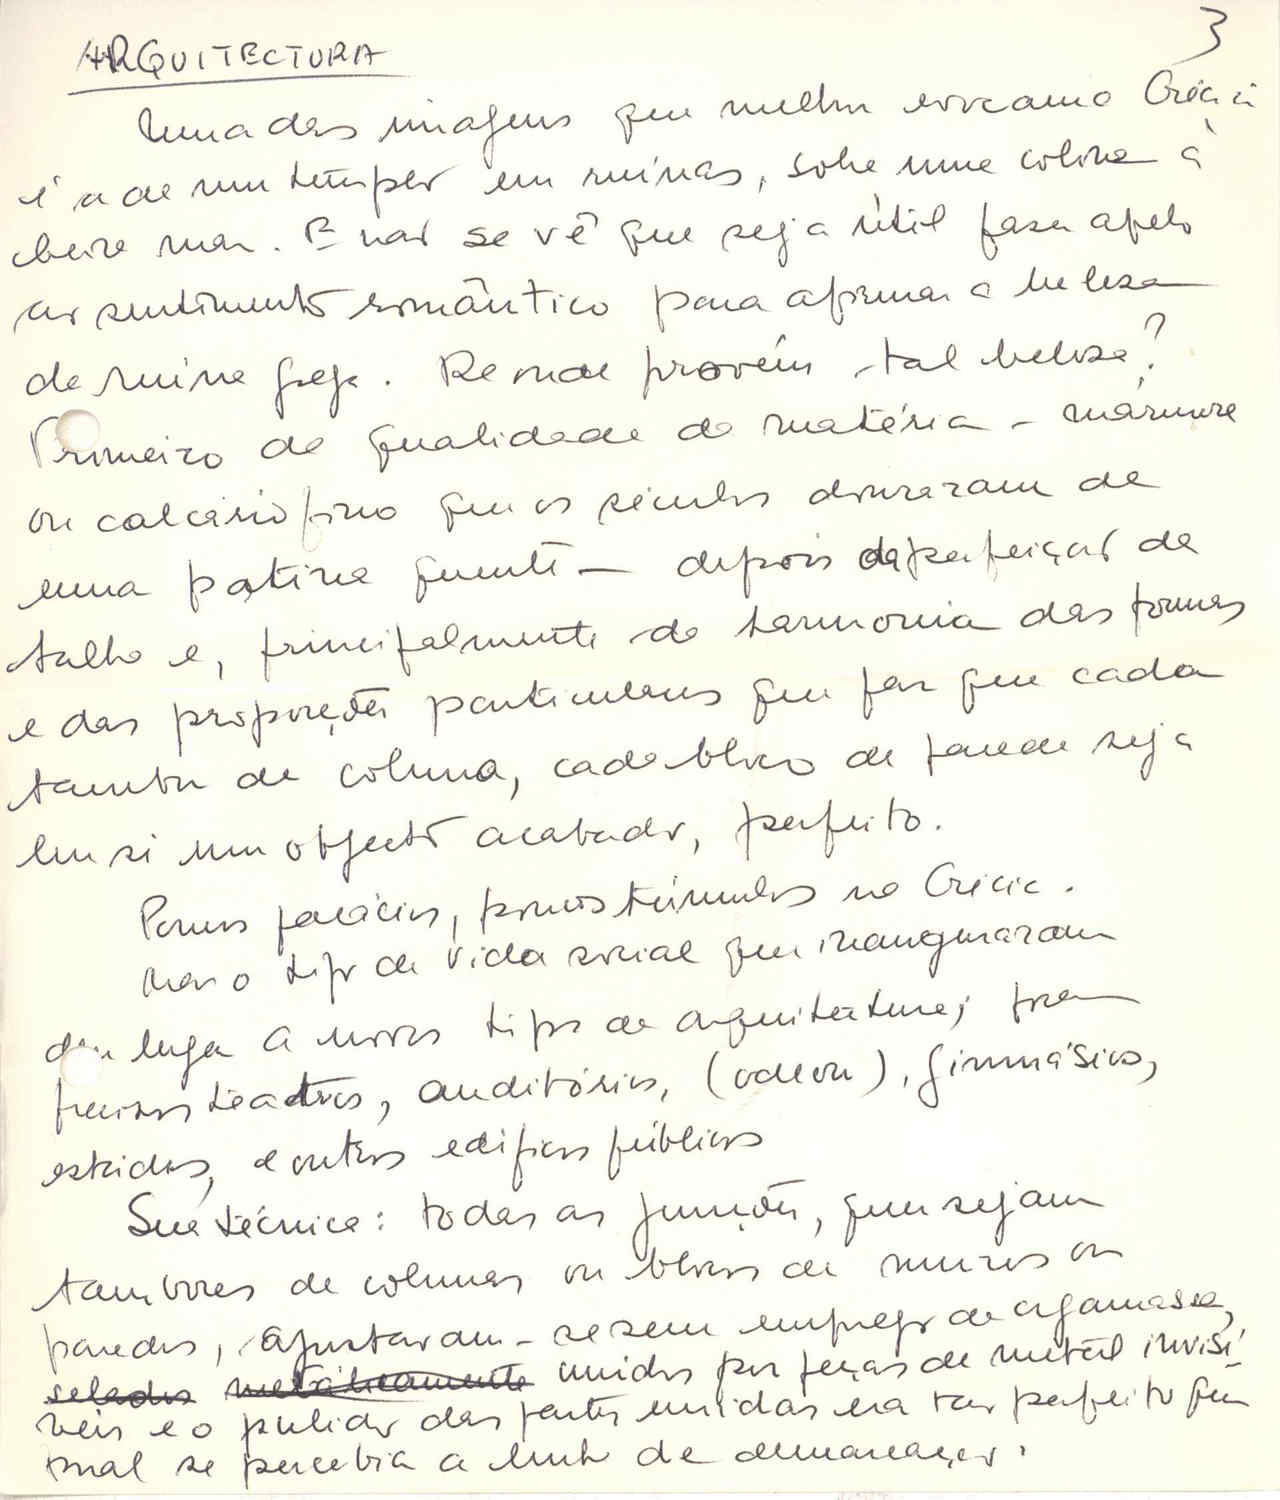 3
ARQUITECTURA
Uma das imagens que melhor evocam a Grécia
é a de um templo em ruínas, sobre uma colina à
beira mar. E não se vê que seja útil fazer apelo
ao sentimento romântico para afirmar a beleza
da ruína grega. De onde provém tal beleza?
Primeiro da qualidade da matéria - mármore
ou calcário fino que os séculos douraram de
uma patine quente - depois da perfeição de
talhe e, principalmente da harmonia das formas
e das proporções particulares que faz que cada
tambor de coluna, cada bloco de parede seja
em si um objecto acabado, perfeito.
Poucos palácios, poucos túmulos na Grécia.
Mas o tipo de vida social que inauguraram
deu lugar a novos tipos de arquitectura; foram
precisos teatros, auditórios, (odeon), gimnásios,
estádios, e outros edifícios públicos
Sua técnica: todas as junções, quer sejam
tambores de colunas ou blocos de muros ou
paredes, ajustavam-se sem emprego de argamassa,
selados metalicamente unidos por peças de metal invisí-
veis e o polido das partes unidas era tão perfeito que
mal se percebia a linha de demarcação.